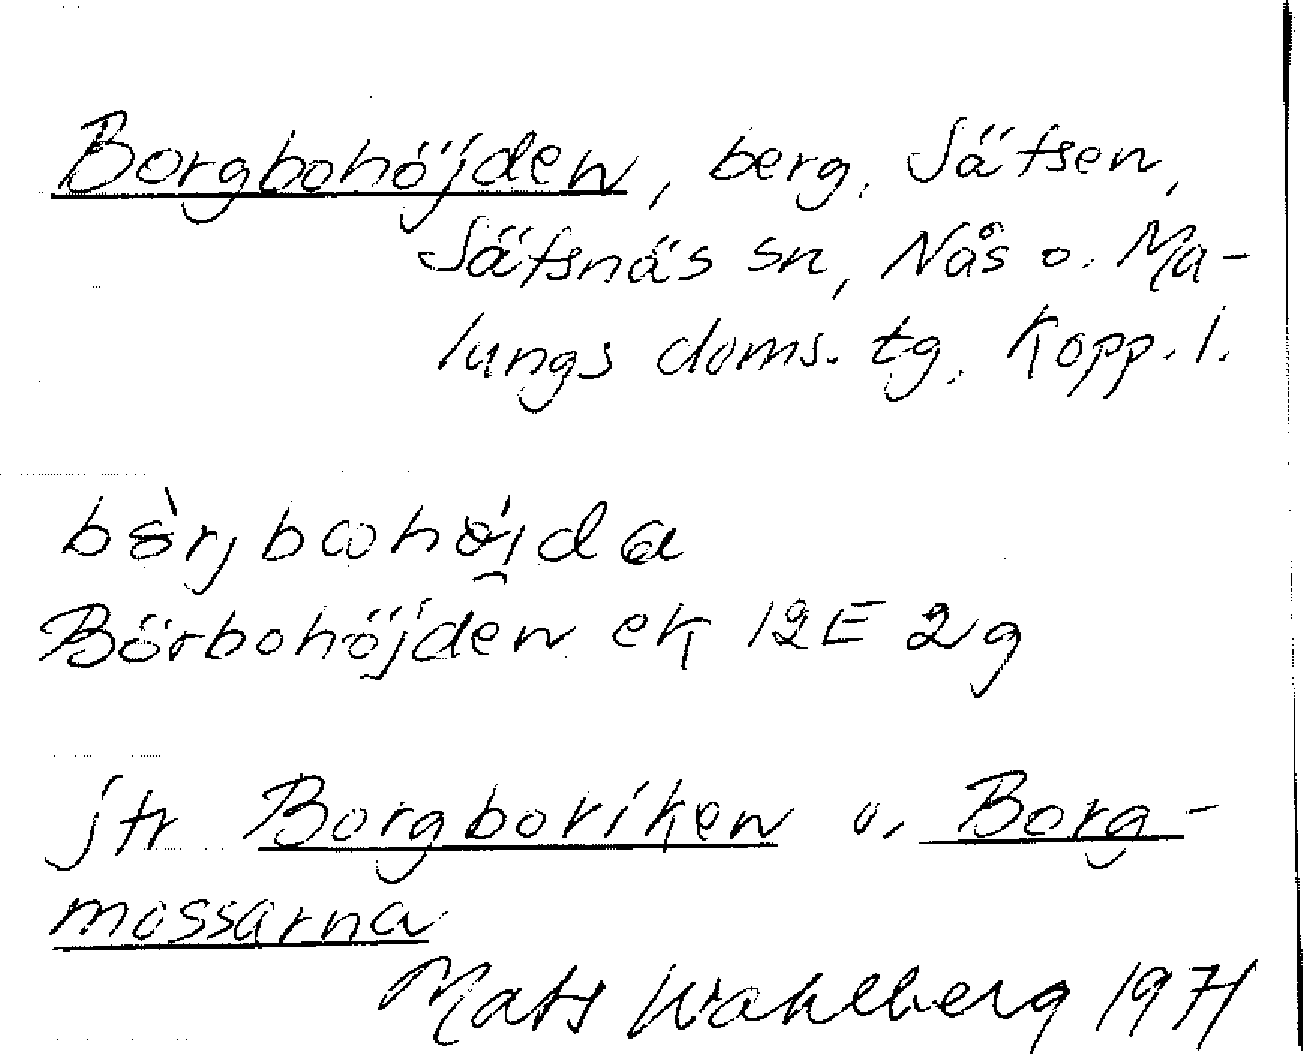 Borgbohöjden, berg, Säfsen,
Säfsnäs sn, Nås o. Ma-
lungs doms. tg. Kopp. l.
Börbohöjden ek 12E 2g
jfr Borgboriken o. Borg-
mossarna
Mats Wahlberg 1971